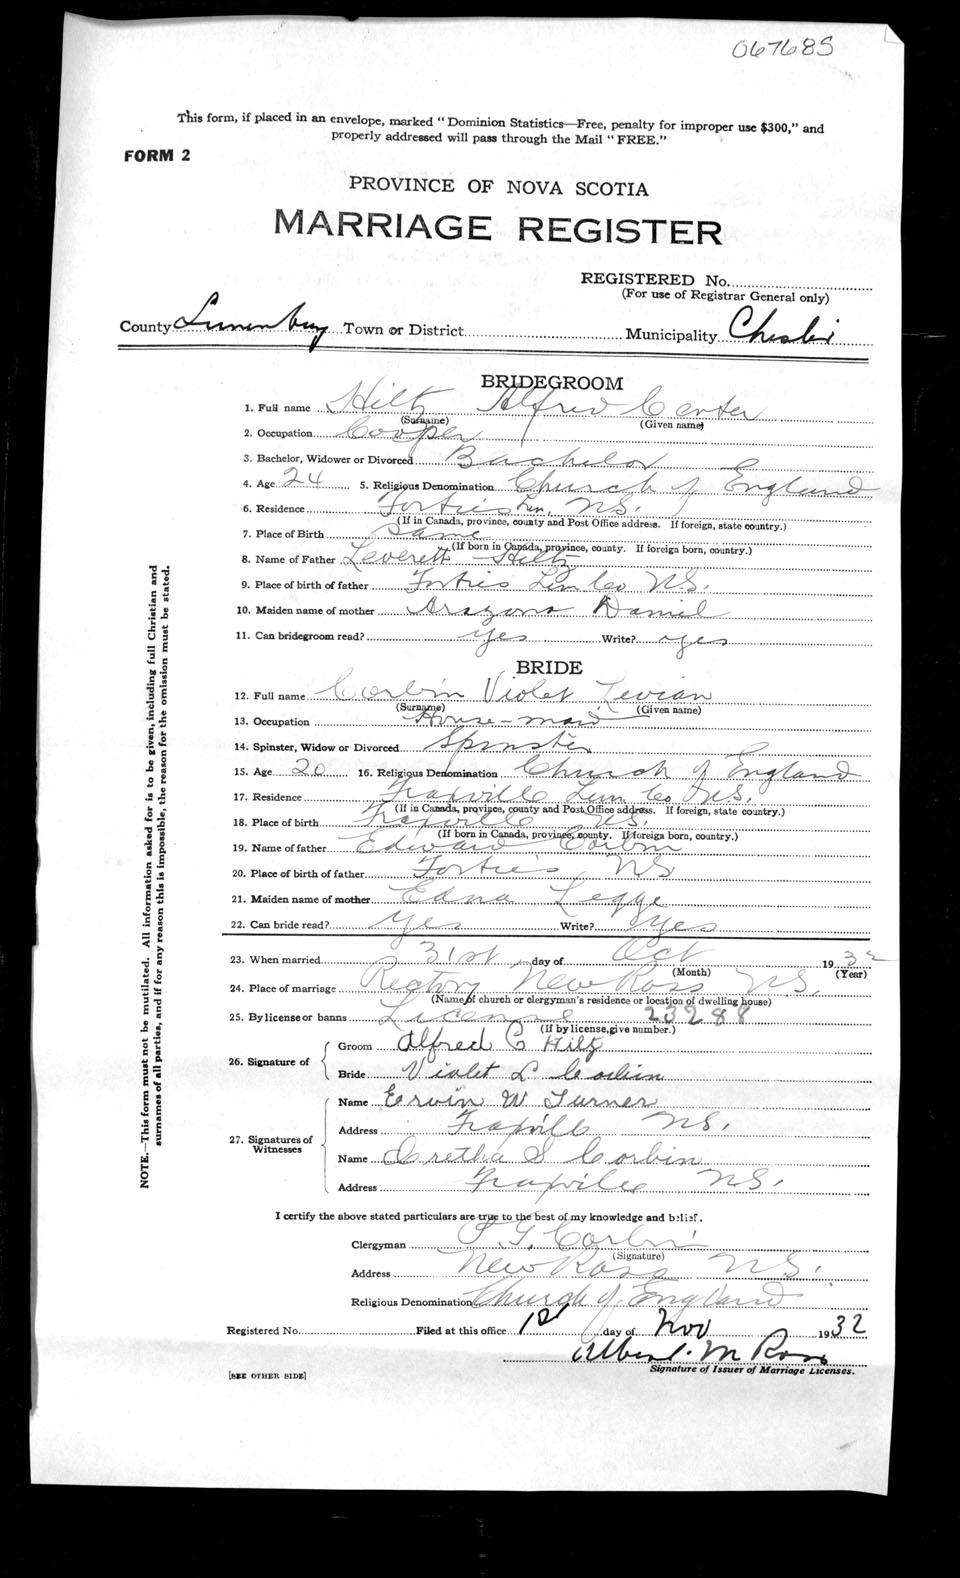 067685
This form, if placed in an envelope, marked "Dominion Statistics—Free, penalty for improper use $300," and
properly addressed will pass through the Mail "FREE."
FORM 2
PROVINCE OF NOVA SCOTIA
MARRIAGE REGISTER
REGISTERED No.
(For use of Registrar General only)
County Lunenburg Town or District Municipality Chester
BRIDEGROOM
1. Full name Hiltz Alfred Carter
(Surname) (Given name)
2. Occupation Cooper
3. Bachelor, Widower or Divorced Bachelor
4. Age 24 5. Religious Denomination Church of England
6. Residence Forties Lun. N.S.
(If in Canada, province, county and Post Office address. If foreign, state country.)
7. Place of Birth Same
(If born in Canada, province, county. If foreign born, country.)
8. Name of Father Leverett Hiltz
9. Place of birth of father Forties Lun Co N.S.
10. Maiden name of mother Arazona Daniel
11. Can bridegroom read? yes Write? yes
BRIDE
12. Full name Corbin Violet Levian
(Surname) (Given name)
13. Occupation House-maid
14. Spinster, Widow or Divorced Spinster
15. Age 20 16. Religious Denomination Church of England
17. Residence Fraxville Lun Co N.S.
(If in Canada, province, county and Post Office address. If foreign, state country.)
18. Place of birth Fraxville N.S.
(If born in Canada, province, county. If foreign born, country.)
19. Name of father Edward Corbin
20. Place of birth of father Forties N.S
21. Maiden name of mother Edna Legge
22. Can bride read? yes Write? yes
23. When married 31st day of Oct 1932
(Month) (Year)
24. Place of marriage Rectory New Ross N.S.
(Name of church or clergyman's residence or location of dwelling house)
25. By license or banns License 23288
(If by license, give number.)
26. Signature of Groom Alfred C Hiltz
Bride Violet L Corbin
27. Signatures of Witnesses Name Ervin W Turner
Address Fraxville N.S.
Name Cretha S Corbin
Address Fraxville N.S.
I certify the above stated particulars are true to the best of my knowledge and belief.
Clergyman Corbin
(Signature)
Address New Ross N.S.
Religious Denomination Church of England
Registered No. Filed at this office 1st day of Nov 1932
Albert M Ross
Signature of Issuer of Marriage Licenses.
[SEE OTHER SIDE]
NOTE.—This form must not be mutilated. All information asked for is to be given, including full Christian and
surnames of all parties, and if for any reason this is impossible, the reason for the omission must be stated.